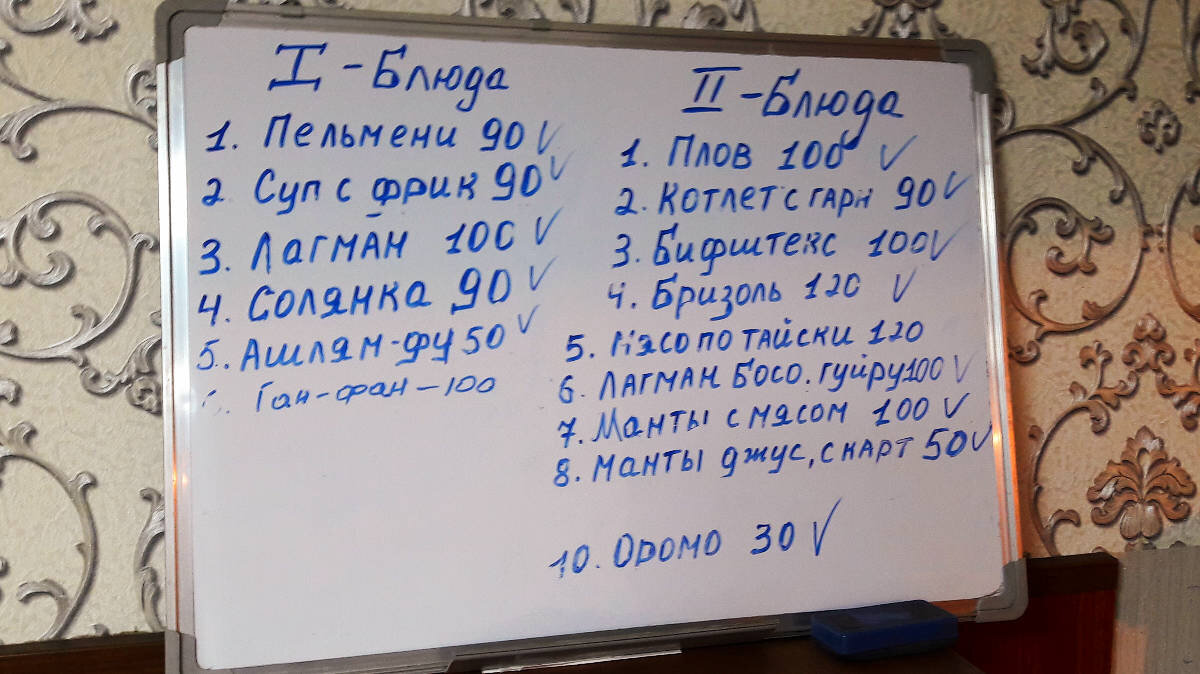 I - Блюда
1. Пельмени 90 V
2 Суп с фрик 90 V
3. Лагман 100 V
4. Солянка 90 V
5. Ашлям-фу 50 V
Ган-фан - 100
II - Блюда
1. Плов 100 V
2. Котлет с гарн 90 V
3. Бифштекс 100 V
4. Бризоль 120 V
5. Мясо по тайски 120
6. Лагман босо. гуйру 100 V
7. Манты с мясом 100 V
8. Манты джус, с карт 50 V
10. Оромо 30 V